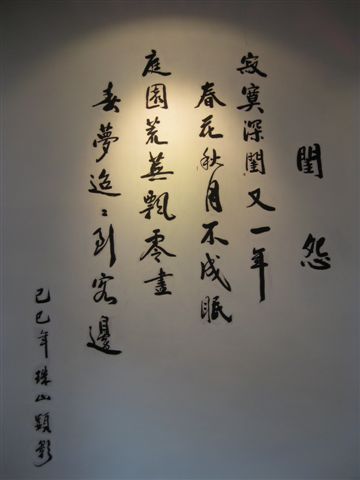 閨怨
寂寞深閨又一年
春花秋月不成眠
庭園荒蕪飄零盡
春夢迢迢到客邊
己巳年珠山顯影